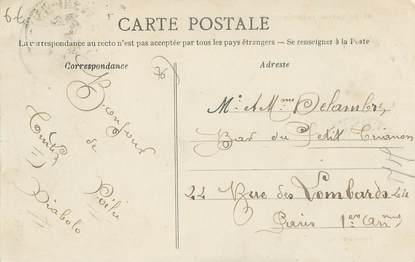 CARTE POSTALE
La correspondance au recto n'est pas acceptée par tous les pays étrangers — Se renseigner à la Poste
Correspondance
Adresse
Bonjour
de
Poilu
Diabolo
Mr & Mme Delambre
Bar du Petit Trianon
22 Rue des Lombards 22
Paris 1er Arr